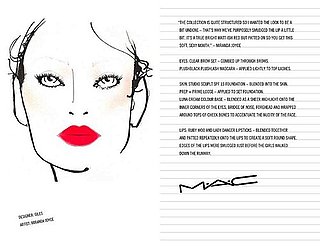 "THE COLLECTION IS QUITE STRUCTURED SO I WANTED THE LOOK TO BE A
BIT UNDONE – THAT'S WHY WE'VE PURPOSELY SMUDGED THE LIP A LITTLE
BIT. IT'S A TRUE BRIGHT MATT-ISH RED BUT PATTED ON SO YOU GET THIS
SOFT, SEXY MOUTH." – MIRANDA JOYCE
EYES: CLEAR BROW SET – COMBED UP THROUGH BROWS.
PLUSHBLACK PLUSHLASH MASCARA – APPLIED LIGHTLY TO TOP LASHES.
SKIN: STUDIO SCULPT SPF 15 FOUNDATION – BLENDED INTO THE SKIN.
PREP + PRIME LOOSE – APPLIED TO SET FOUNDATION.
LUNA CREAM COLOUR BASE – BLENDED AS A SHEER HIGHLIGHT ONTO THE
INNER CORNERS OF THE EYES, BRIDGE OF NOSE, FOREHEAD AND WRAPPED
AROUND TOPS OF CHEEK BONES TO ACCENTUATE THE NUDITY OF THE FACE.
LIPS: RUBY WOO AND LADY DANGER LIPSTICKS – BLENDED TOGETHER
AND PATTED REPEATEDLY ONTO THE LIPS TO CREATE A SOFT ROUND SHAPE.
EDGES OF THE LIPS WERE SMUDGED JUST BEFORE THE GIRLS WALKED
DOWN THE RUNWAY.
M·A·C
DESIGNER: GILES
ARTIST: MIRANDA JOYCE